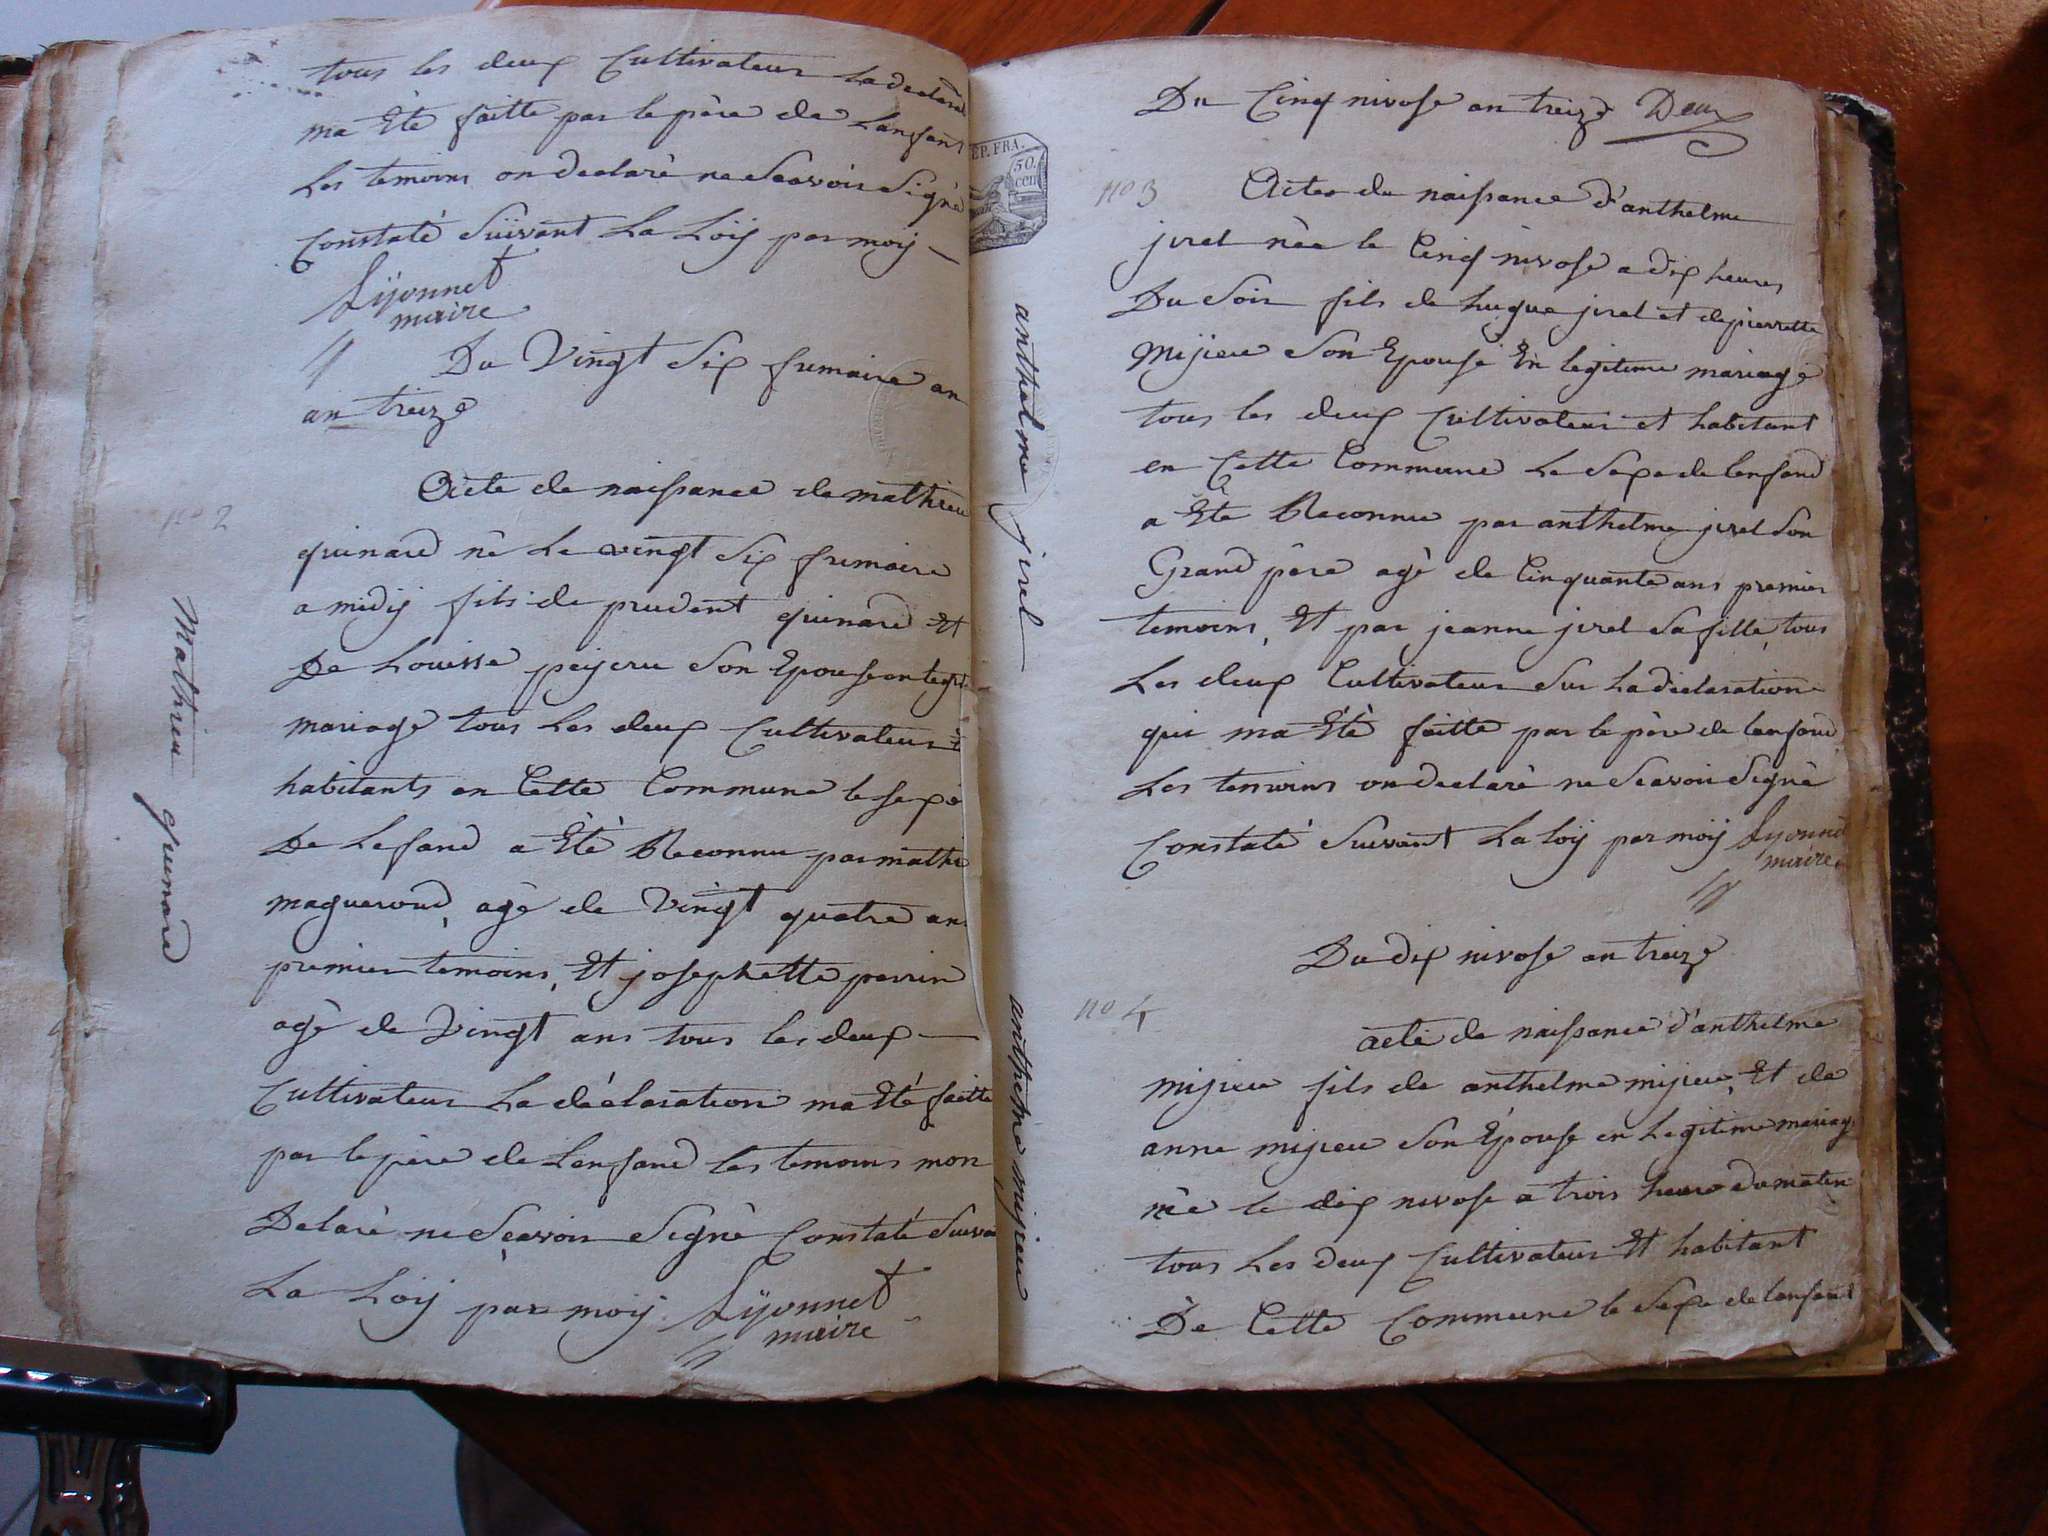 tous les deux Cultivateur la declara
ma Eté faitte par le père de Lanfant
Les temoins on declaré ne Scavoir Signè
Constaté Suivant La Loij par moij
Lijonnet
maire
Du Vingt Six frumaire an
an treize
no 2
Acte de naissance de mathieu
quinard nè Le vingt Six frimaire
a midij fils de prudent quinard Et
De Louisse peijeru Son Epouse en legit
mariage tous les deux Cultivateur Et
habitants en Cette Commune le sexe
De Lefand a Etè Reconnu par mathi
magueroud, agé de Vingt quatre ans
premier temoins, Et josephette perrin
agè de Vingt ans tous les deux
Cultivateur La déclaration ma Eté faitte
par le père de Lenfand les temoins mon
Delarè ne Scavoir Signè Constaté Suivan
La Loij par moij Lijonnet
maire
Mathieu quinard
EP. FRA.
50.
cen
anthelme jirel
anthelme mijieu
Du Cinq nivose an treize Deux
no 3
Acte de naissance d'anthelme
jirel nèe le Cinq nivose a dix heures
Du Soir fils de hugue jirel et de pierrette
Mijieu Son Epouse En legitime mariage
tous les deux Cultivateur et habitant
en Cette Commune Le Sexe de lenfand
a Eté Reconnu par anthelme jirel Son
Grand père agè de Cinquante ans premier
temoins, Et par jeanne jirel Sa fille, tous
Les deux Cultivateur Sur La declaration
qui ma Eté faitte par le père de lenfand
Les temoins on declaré ne Scavoir Signè
Constaté Suivant La loij par moij Lyonnet
maire
Du dix nivose an treize
no 4
acte de naissance d'anthelme
mijieu fils de anthelme mijieu, Et de
anne mijieu Son Epouse en Legitime mariage
nèe le dix nivose a trois heure du matin
tous Les deux Cultivateur Et habitant
De Cette Commune le Sexe de lenfand